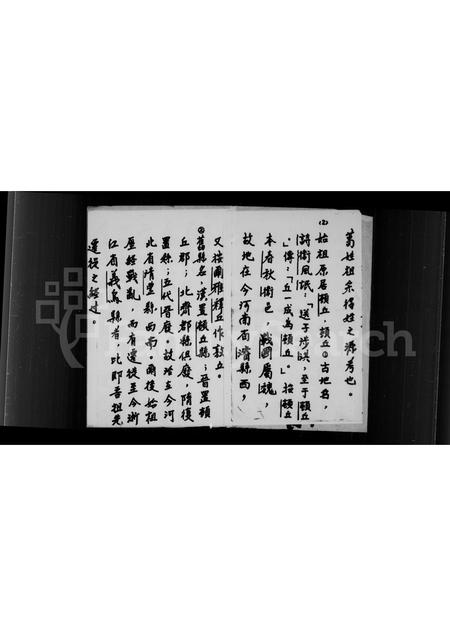 葛姓祖系得姓之源考也。
(2)始祖原居頓丘，頓丘①古地名，
詩衛風氓：「送子涉淇，至于頓丘
。」傳：「丘一成為頓丘。」按頓丘
本春秋衛邑，戰國屬魏，
故地在今河南省濬縣西，
又按爾雅釋丘作敦丘。
②舊縣名，漢置頓丘縣；晉置頓
丘郡；北齊郡縣俱廢，隋復
置縣；五代晉廢，故治在今河
北省清豐縣西南。爾後始祖
歷經戰亂，而有遷徙至今浙
江省義烏縣者，此即吾祖先
遷徙之經過。